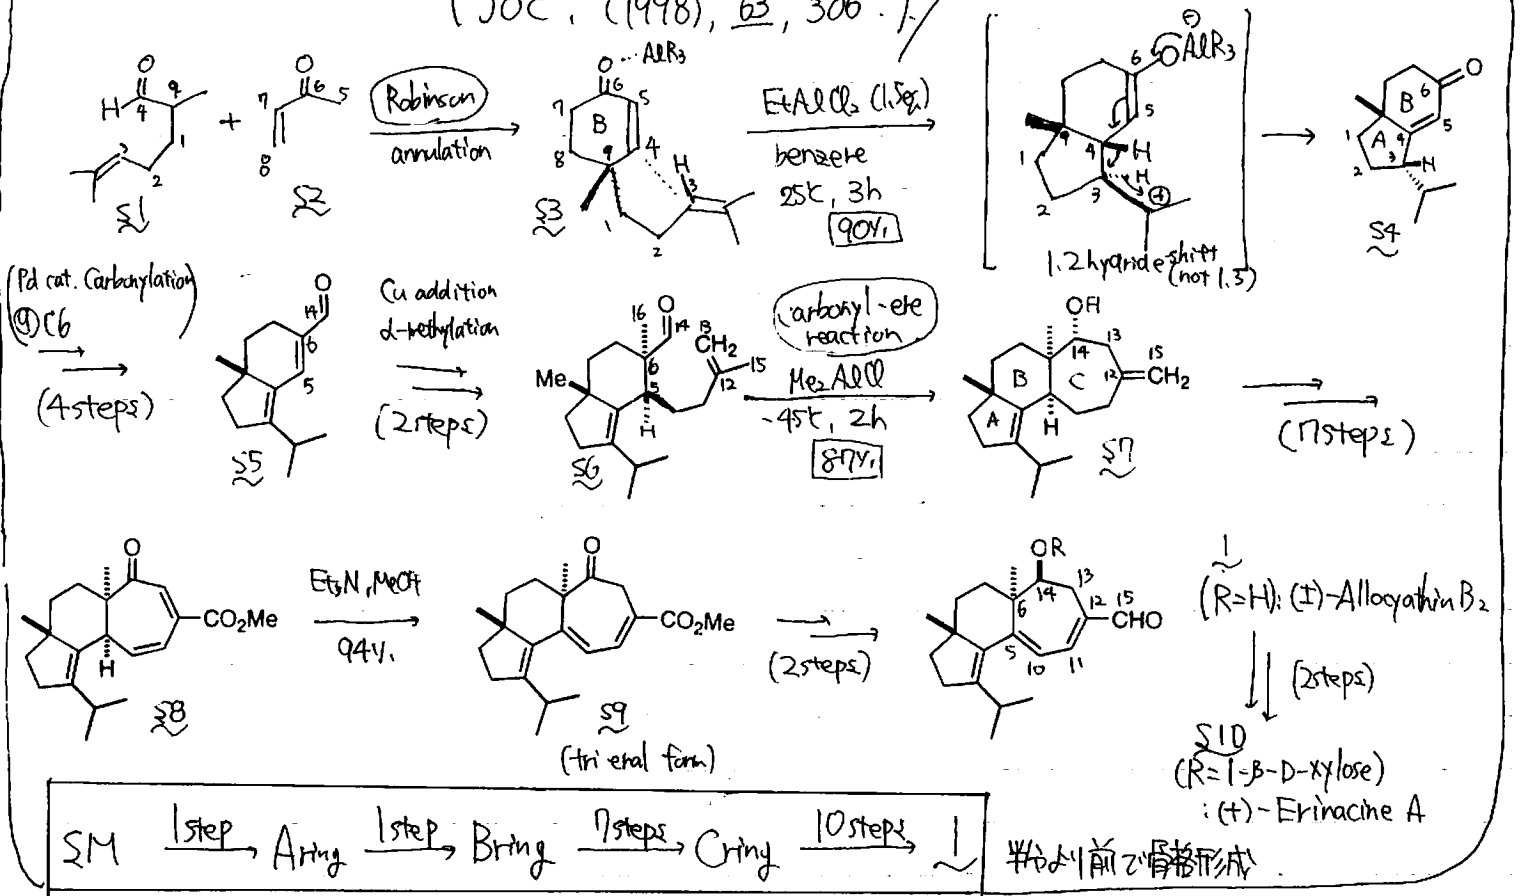 (JOC, (1998), 63, 306.)
H
O
4
9
1
3
2
S1
+
O
6
7
5
8
S2
Robinson
annulation
O···AlR3
6
7
5
B
8
9
4
H
3
1
2
S3
EtAlCl2 (1.5eq.)
benzene
25℃, 3h
90%
⊖
OAlR3
6
5
9
4
H
H
⊕
1
3
2
1.2 hydride shift
(not 1.3)
O
B
6
5
1
A
4
3
2
H
S4
(Pd cat. Carbonylation)
@C6
(4steps)
O
14
6
5
S5
Cu addition
α-methylation
(2steps)
16
O
14
13
CH2
15
12
6
5
Me
H
S6
carbonyl-ene
reaction
Me2AlCl
-45℃, 2h
87%
OH
14
13
15
12
CH2
B
C
A
H
S7
(7steps)
O
CO2Me
H
S8
Et3N, MeOH
94%
O
CO2Me
S9
(trienal form)
(2steps)
OR
13
14
12
15
CHO
6
5
10
11
1
(R=H): (±)-Allocyathin B2
(2steps)
S10
(R=1-β-D-xylose)
: (+)-Erinacine A
SM 1step Aring 1step Bring 7steps Cring 10steps 1
半分より前で骨格形成